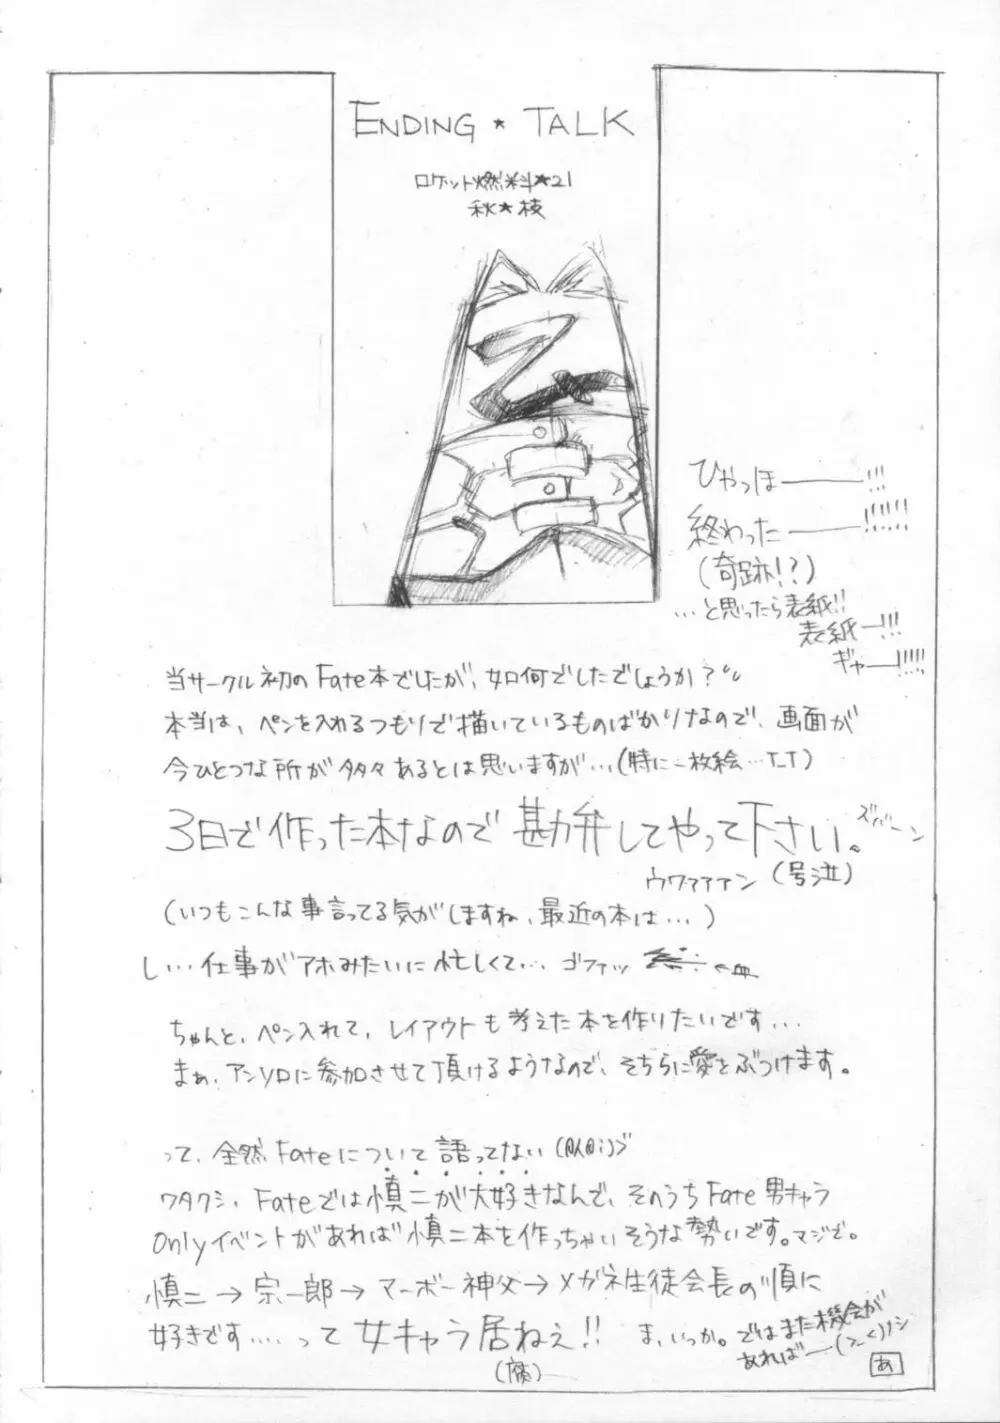 ENDING ★ TALK
ロケット燃料★21
秋★枝
乙
ひやっほーーー!!!
終わったーーー!!!!!
(奇跡!?)
…と思ったら表紙!!
表紙ー!!!
ギャー!!!!!
当サークル初のFate本でしたが、如何でしたでしょうか?
本当は、ペンを入れるつもりで描いているものばかりなので、画面が
今ひとつな所が多々あるとは思いますが…(特に一枚絵…T_T)
3日で作った本なので勘弁してやって下さい。ズバーン
ウワァァァン (号泣)
(いつもこんな事言ってる気がしますね、最近の本は…)
し…仕事がアホみたいに忙しくて… ゴファッ ←血
ちゃんと、ペン入れて、レイアウトも考えた本を作りたいです…
まぁ、アンソロに参加させて頂けるようなので、そちらに愛をぶつけます。
って、全然Fateについて語ってない
ワタクシ、Fateでは慎二が大好きなんで、そのうちFate男キャラ
Onlyイベントがあれば慎二本を作っちゃいそうな勢いです。マジで。
慎二→宗一郎→マーボー神父→メガネ生徒会長の順に
好きです…. って 女キャラ居ねぇ!! ま、いっか。
(腐)
ではまた機会が
あればー(>_<)ノシ
あ